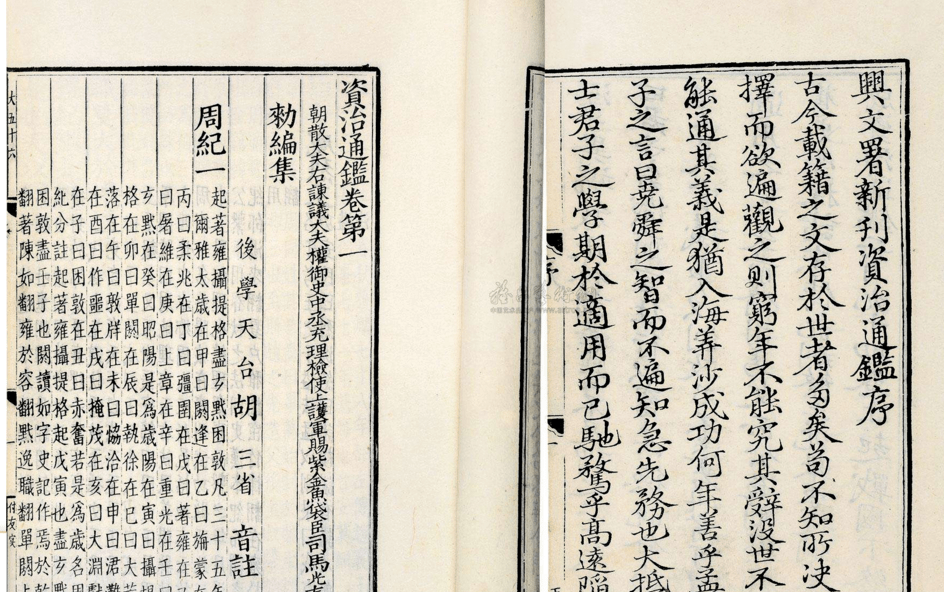 興文署新刊資治通鑑序
古今載籍之文存於世者多矣苟不知所決
擇而欲遍觀之則窮年不能究其辭没世不
能通其義是猶入海筭沙成功何年善乎孟
子之言曰尭舜之智而不遍知急先務也大抵
士君子之學期於適用而已馳騖乎高遠陷
序
資治通鑑卷第一
朝散大夫右諫議大夫權御史中丞充理檢使上護軍賜紫金魚袋臣司馬光
勑編集
後學天台胡三省音註
周紀一
起著雍攝提格盡玄黓困敦凡三十五年
爾雅太歳在甲曰閼逢在乙曰旃蒙在
丙曰柔兆在丁曰彊圉在戊曰著雍在
曰屠維在庚曰上章在辛曰重光在壬曰
玄黓在癸曰昭陽是爲歳陽在寅曰攝提
格在卯曰單閼在辰曰執徐在巳曰大荒
落在午曰敦牂在未曰協洽在申曰涒灘
在酉曰作噩在戌曰掩茂在亥曰大淵獻
在子曰困敦在丑曰赤奮若是爲歳名周
紀分註起著雍攝提格起戊寅也盡玄黓
困敦盡壬子也閼讀如字史記作焉於乾
翻著陳如翻雍於容翻黓逸職翻單閼上
大五十六